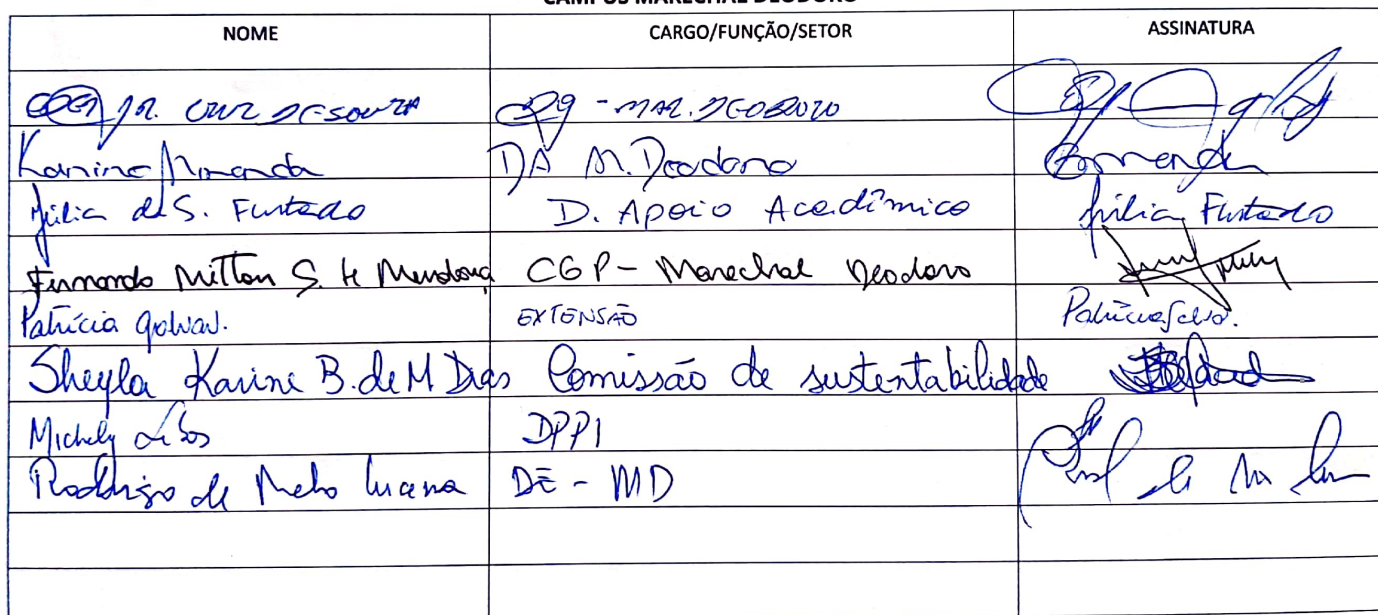 CAMPUS MARECHAL DEODORO
NOME CARGO/FUNÇÃO/SETOR ASSINATURA
JR. CRUZ DE SOUZA - MAR. DEODORO
Karine Miranda DA M. Deodoro
Júlia de S. Furtado D. Apoio Acadêmico Júlia Furtado
Fernando Milton S. H Mendonça CGP - Marechal Deodoro
Patrícia EXTENSÃO Patrícia
Sheyla Karine B. de M Dias Comissão de sustentabilidade
Michely DPPI
Rodrigo de Melo Lucena DE - MD